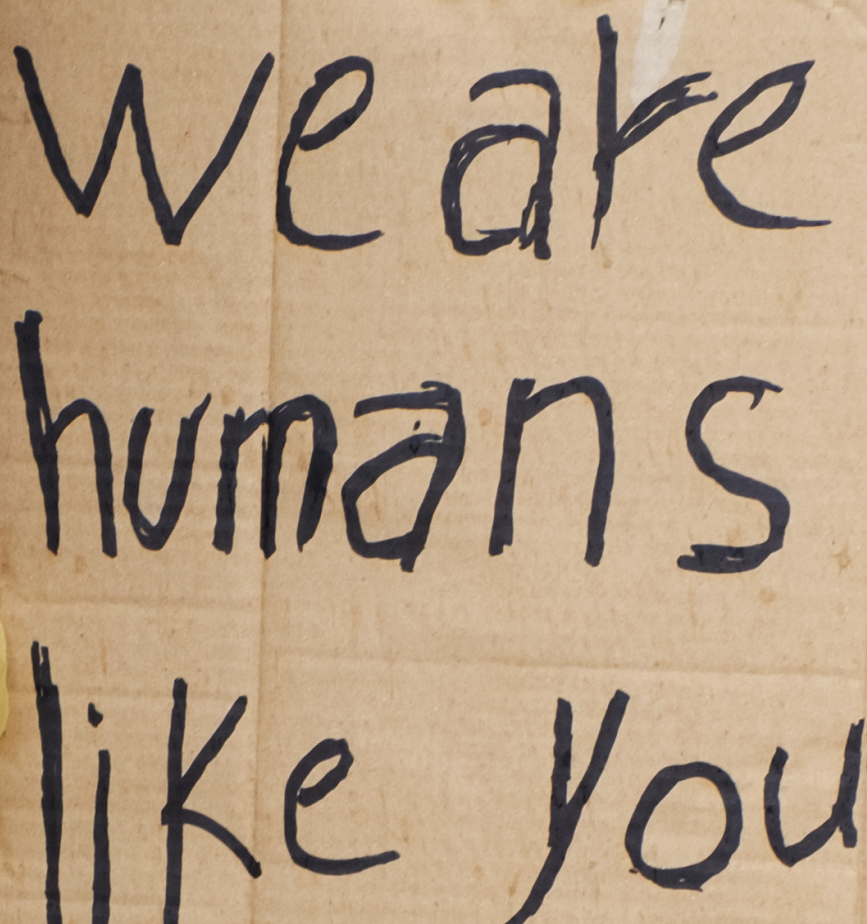 we are
humans
like you